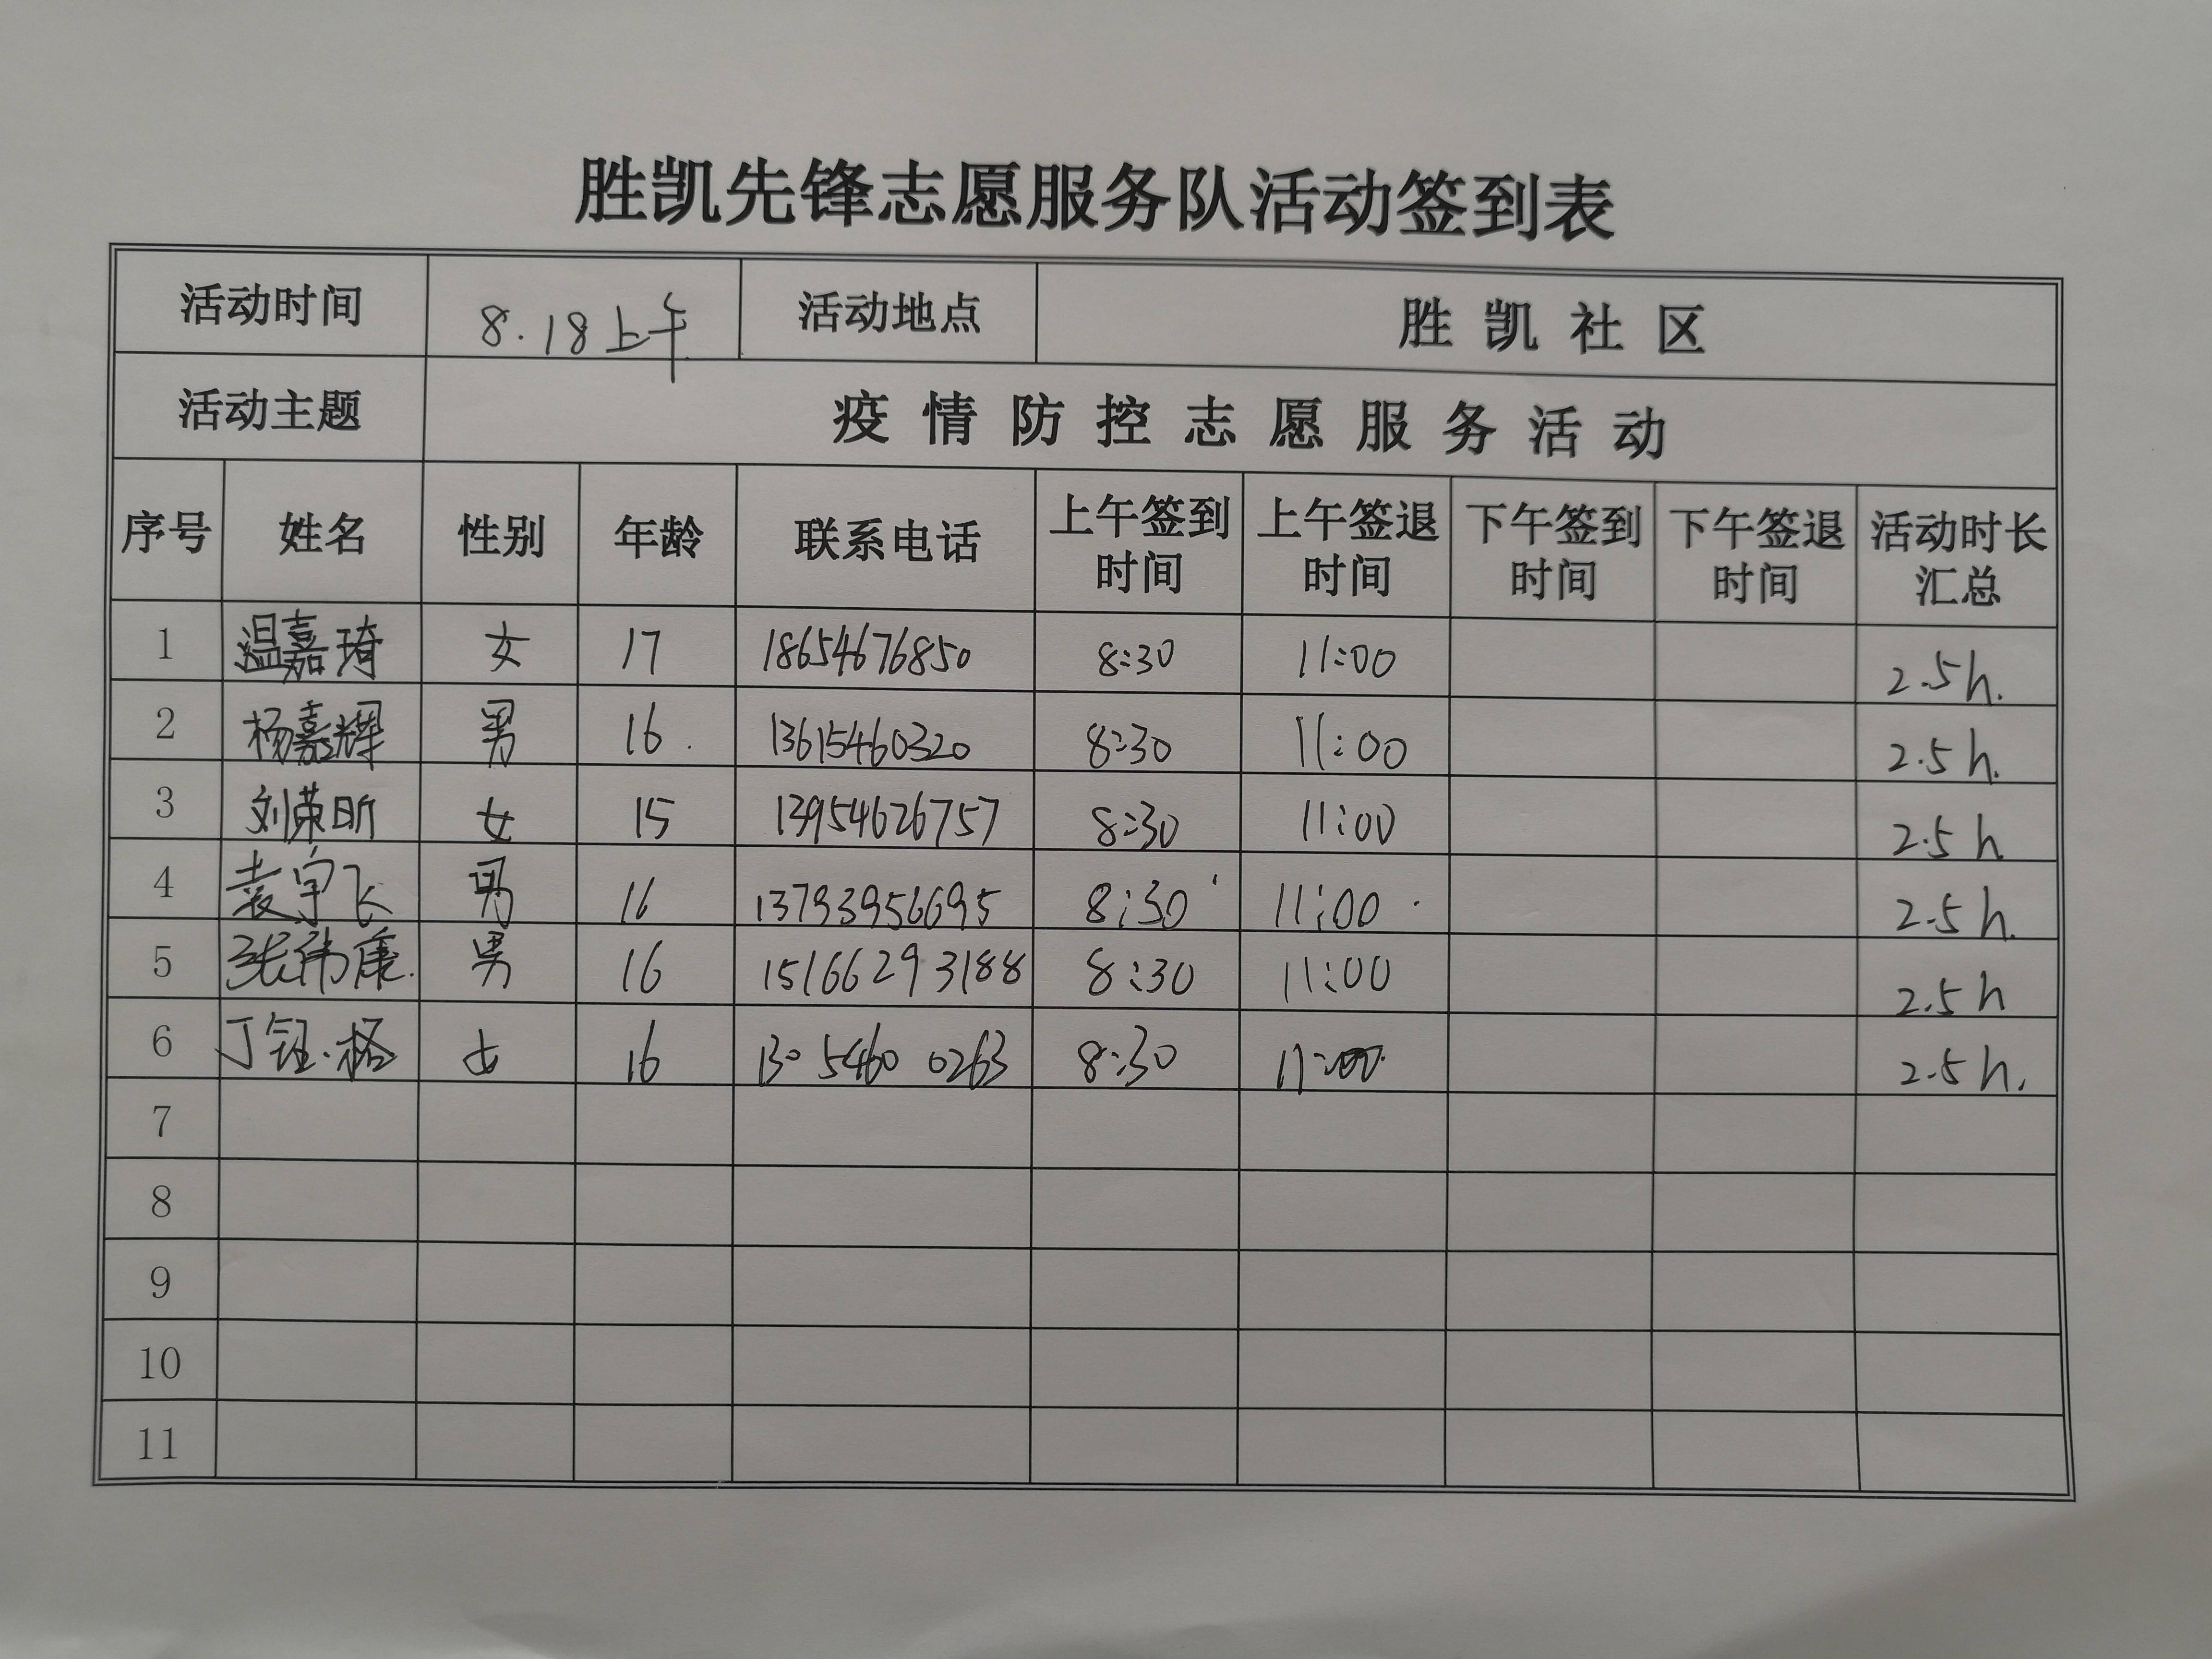 胜凯先锋志愿服务队活动签到表
活动时间 8.18上午 活动地点 胜凯社区
活动主题 疫情防控志愿服务活动
序号 姓名 性别 年龄 联系电话 上午签到时间 上午签退时间 下午签到时间 下午签退时间 活动时长汇总
1 温嘉琦 女 17 18654676850 8:30 11:00 2.5h.
2 杨嘉辉 男 16. 13615460320 8:30 11:00 2.5h.
3 刘荣昕 女 15 13954626757 8:30 11:00 2.5h
4 袁宇飞 男 16 13793956695 8:30 11:00 2.5h.
5 张伟康. 男 16 15166293188 8:30 11:00 2.5h
6 丁钰格 女 16 130 5460 0263 8:30 11:00 2.5h.
7
8
9
10
11